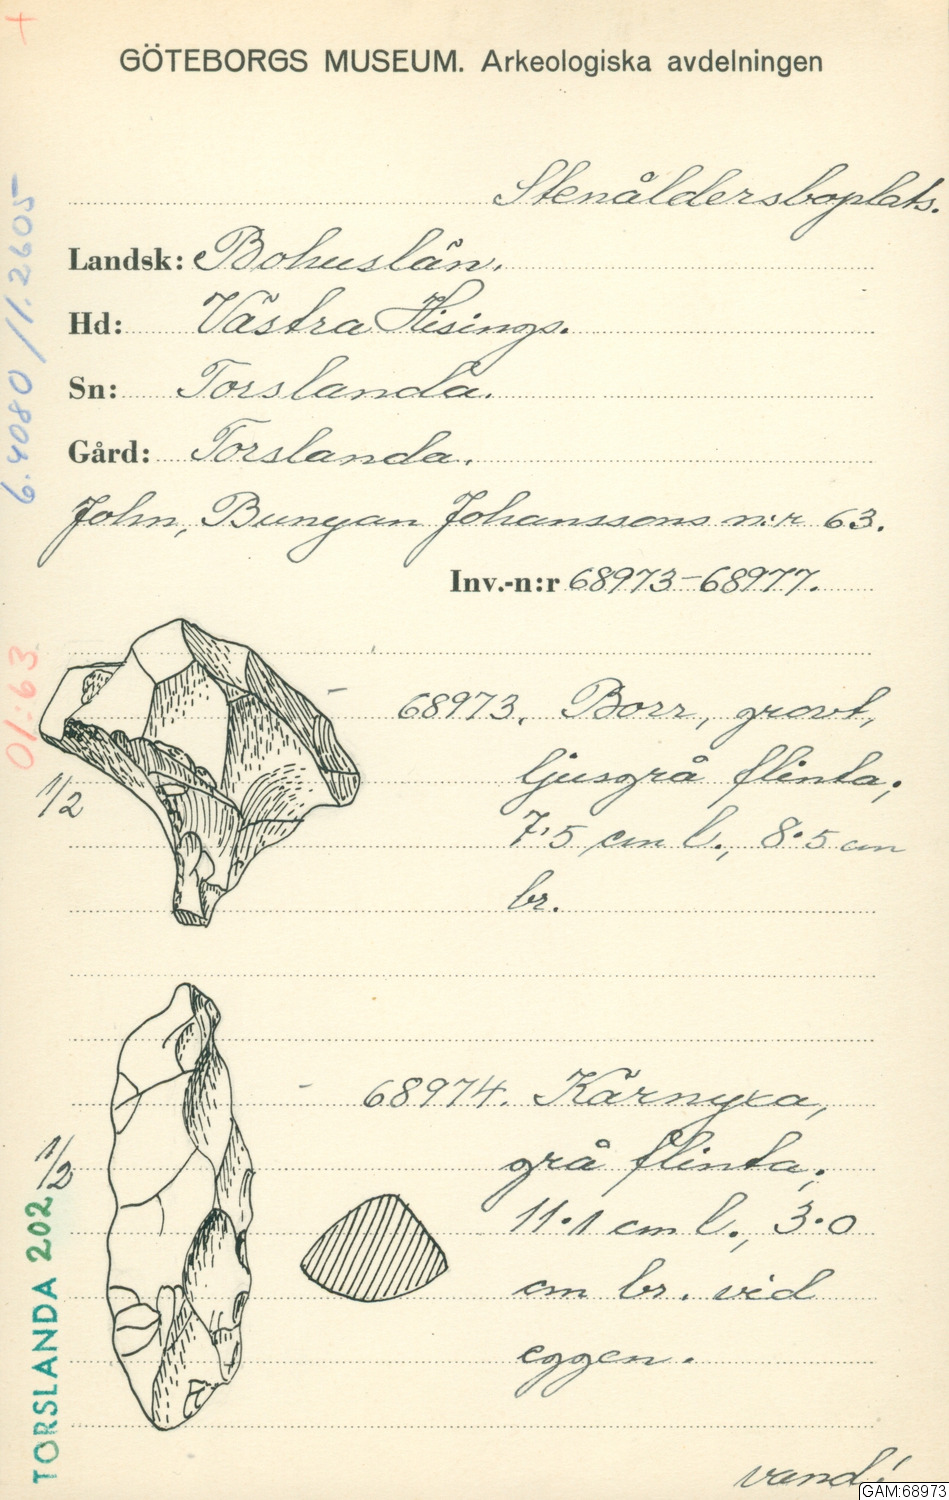 +
GÖTEBORGS MUSEUM. Arkeologiska avdelningen
Stenåldersboplats.
Landsk: Bohuslän.
Hd: Västra Hisings.
Sn: Torslanda.
Gård: Torslanda.
John, Bunyan Johanssons n:r 63.
Inv.-n:r 68973-68977.
68973. Borr, grovt,
ljusgrå flinta;
7.5 cm l., 8.5 cm
br.
1/2
68974. Kärnyxa,
grå flinta;
11.1 cm l., 3.0
cm br. vid
eggen.
1/2
vänd!
6.4080 / 1.2605
01:63
TORSLANDA 202
GAM:68973